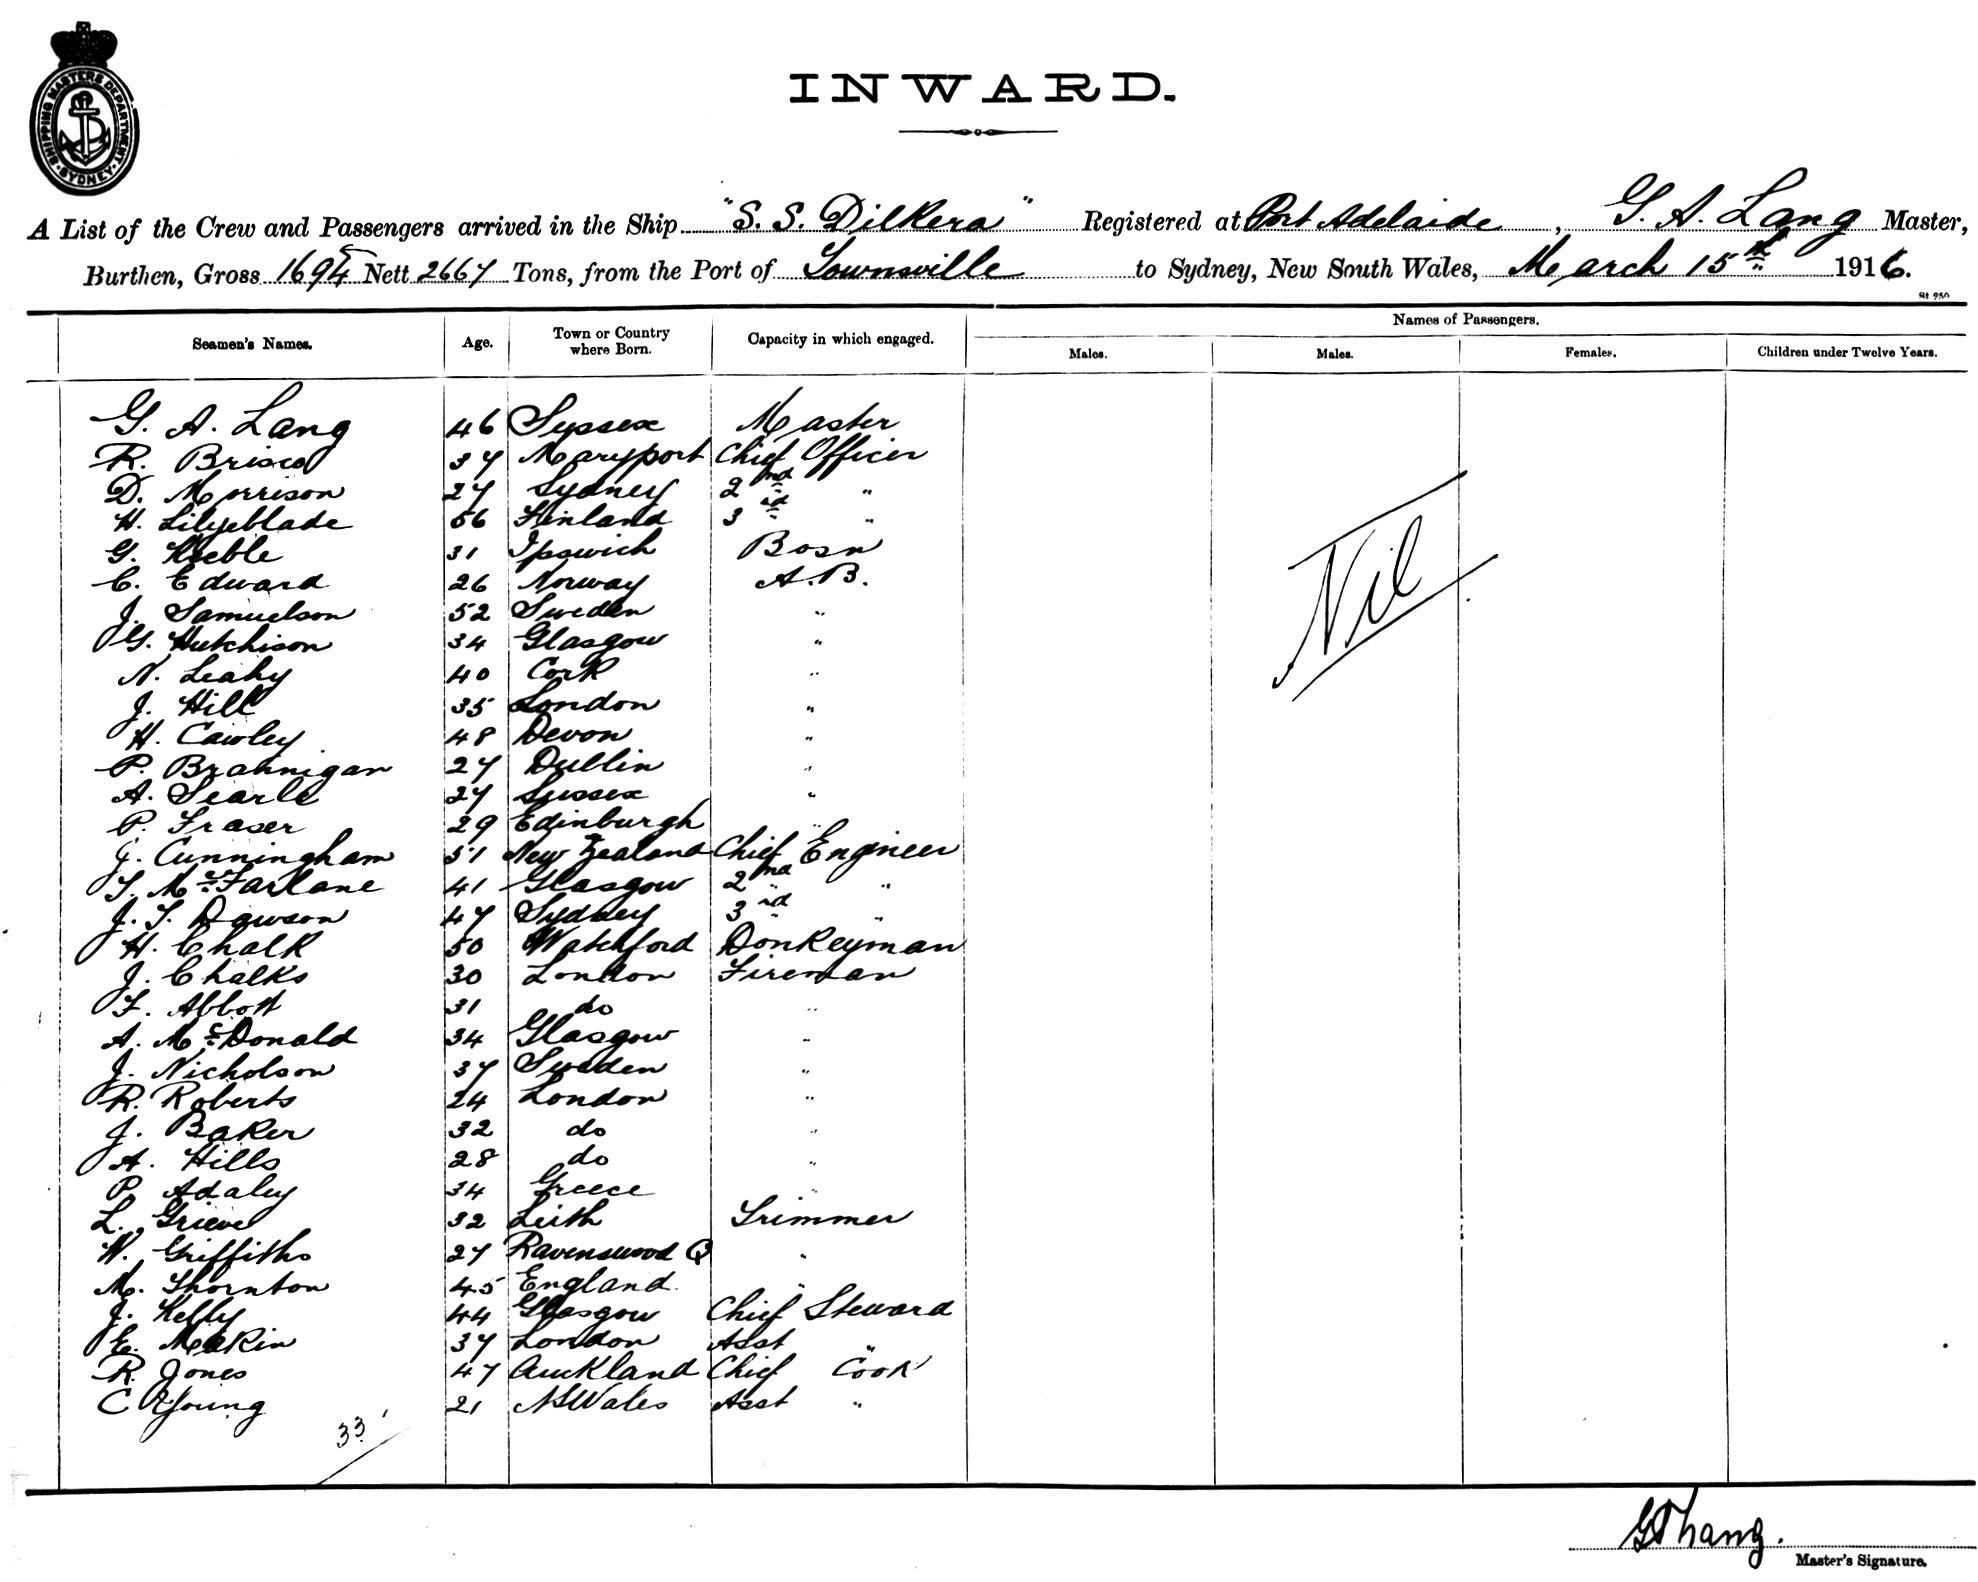 SHIPPING MASTERS DEPARTMENT
SYDNEY
INWARD.
A List of the Crew and Passengers arrived in the Ship "S. S. Dilkera" Registered at Port Adelaide, G. A. Lang Master,
Burthen, Gross 1694 Nett 2667 Tons, from the Port of Townsville to Sydney, New South Wales, March 15th 1916.
Names of Passengers.
Seamen's Names. Age. Town or Country where Born. Capacity in which engaged. Males. Males. Females. Children under Twelve Years.
G. A. Lang 46 Sussex Master
R. Brisco 37 Maryport Chief Officer
D. Morrison 27 Sydney 2nd "
H. Lilyeblade 56 Finland 3rd "
G. Keeble 31 Ipswich Bosn
C. Edward 26 Norway A.B.
J. Samuelson 52 Sweden "
G. Hutchison 34 Glasgow "
N. Leahy 40 Cork "
J. Hill 35 London "
H. Cawley 48 Devon "
P. Brannigan 27 Dublin "
A. Searle 27 Sussex "
P. Fraser 29 Edinburgh "
J. Cunningham 51 New Zealand Chief Engineer
T. McFarlane 41 Glasgow 2nd "
J. T. Dawson 47 Sydney 3rd "
H. Chalk 50 Watchford Donkeyman
J. Chalks 30 London Fireman
F. Abbott 31 do "
A. McDonald 34 Glasgow "
J. Nicholson 37 Sweden "
R. Roberts 24 London "
J. Baker 32 do "
A. Hills 28 do "
P. Adaley 34 Greece "
L. Grieve 32 Leith Trimmer
W. Griffiths 27 Ravenswood Q "
M. Thornton 45 England "
J. Kelly 44 Glasgow Chief Steward
E. Meakin 37 London Asst "
R. Jones 47 Auckland Chief Cook
C Young 21 NSWales Asst "
33
Nil
G A Lang.
Master's Signature.